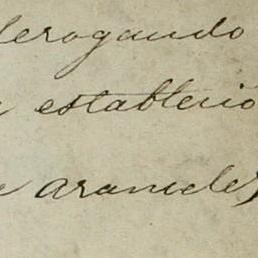 derogando
establecio
aranceles